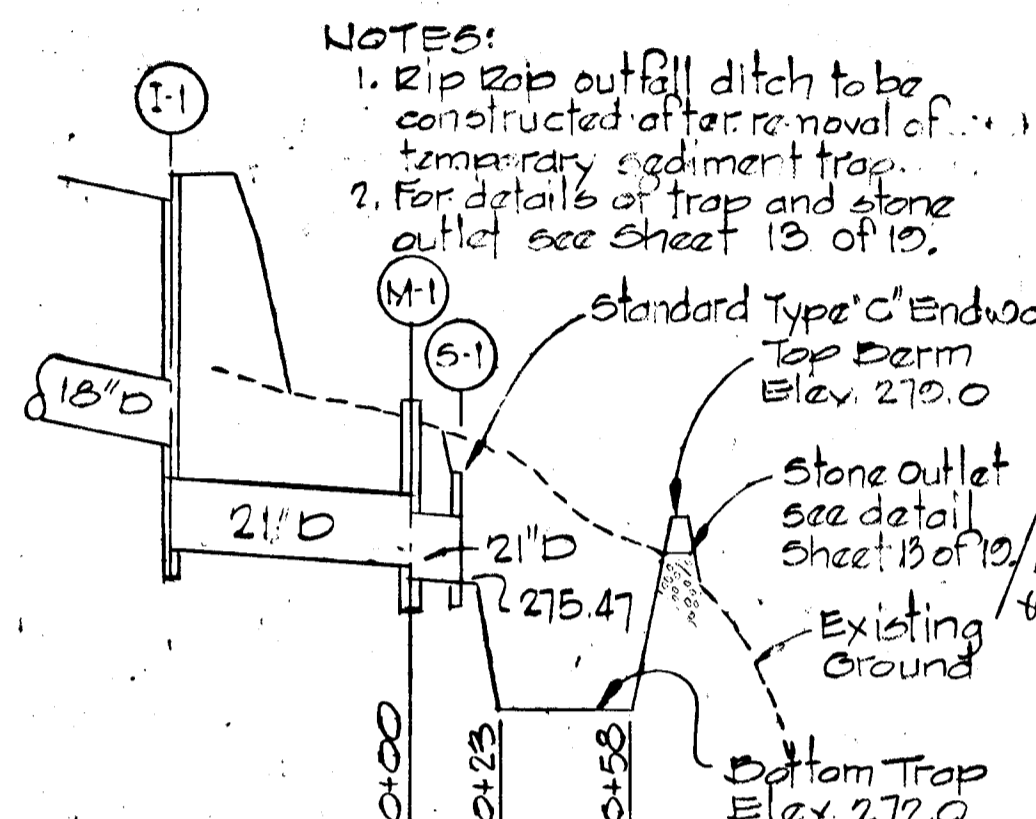 NOTES:
1. Rip Rap outfall ditch to be
constructed after removal of
temporary sediment trap.
2. For details of trap and stone
outlet see Sheet 13 of 19.
I-1
M-1
S-1
Standard Type "C" Endwa
Top Berm
Elev. 279.0
18"D
Stone Outlet
see detail
Sheet 13 of 19.
21"D
21"D
275.47
Existing
Ground
0+00
0+23
0+58
Bottom Trap
Elev. 272.0